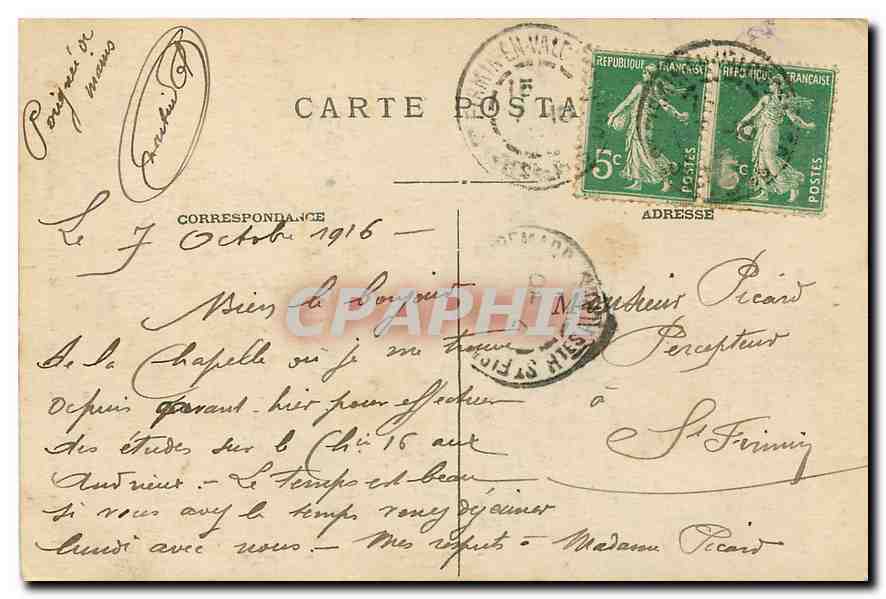 Poignée de
mains
CARTE POSTA
REPUBLIQUE FRANÇAISE
5c
POSTES
REPUBLIQUE FRANÇAISE
5c
POSTES
CORRESPONDANCE
ADRESSE
Le 7 Octobre 1916 —
Bien le bonjour
de la Chapelle où je me trouve
depuis avant-hier pour effectuer
des études sur le Chin 16 aux
Andrieux. — Le temps est beau
si vous avez le temps venez déjeuner
lundi avec nous. — Mes respects à Madame Picard
Monsieur Picard
Percepteur
à
St Firmin
CPAPHIL